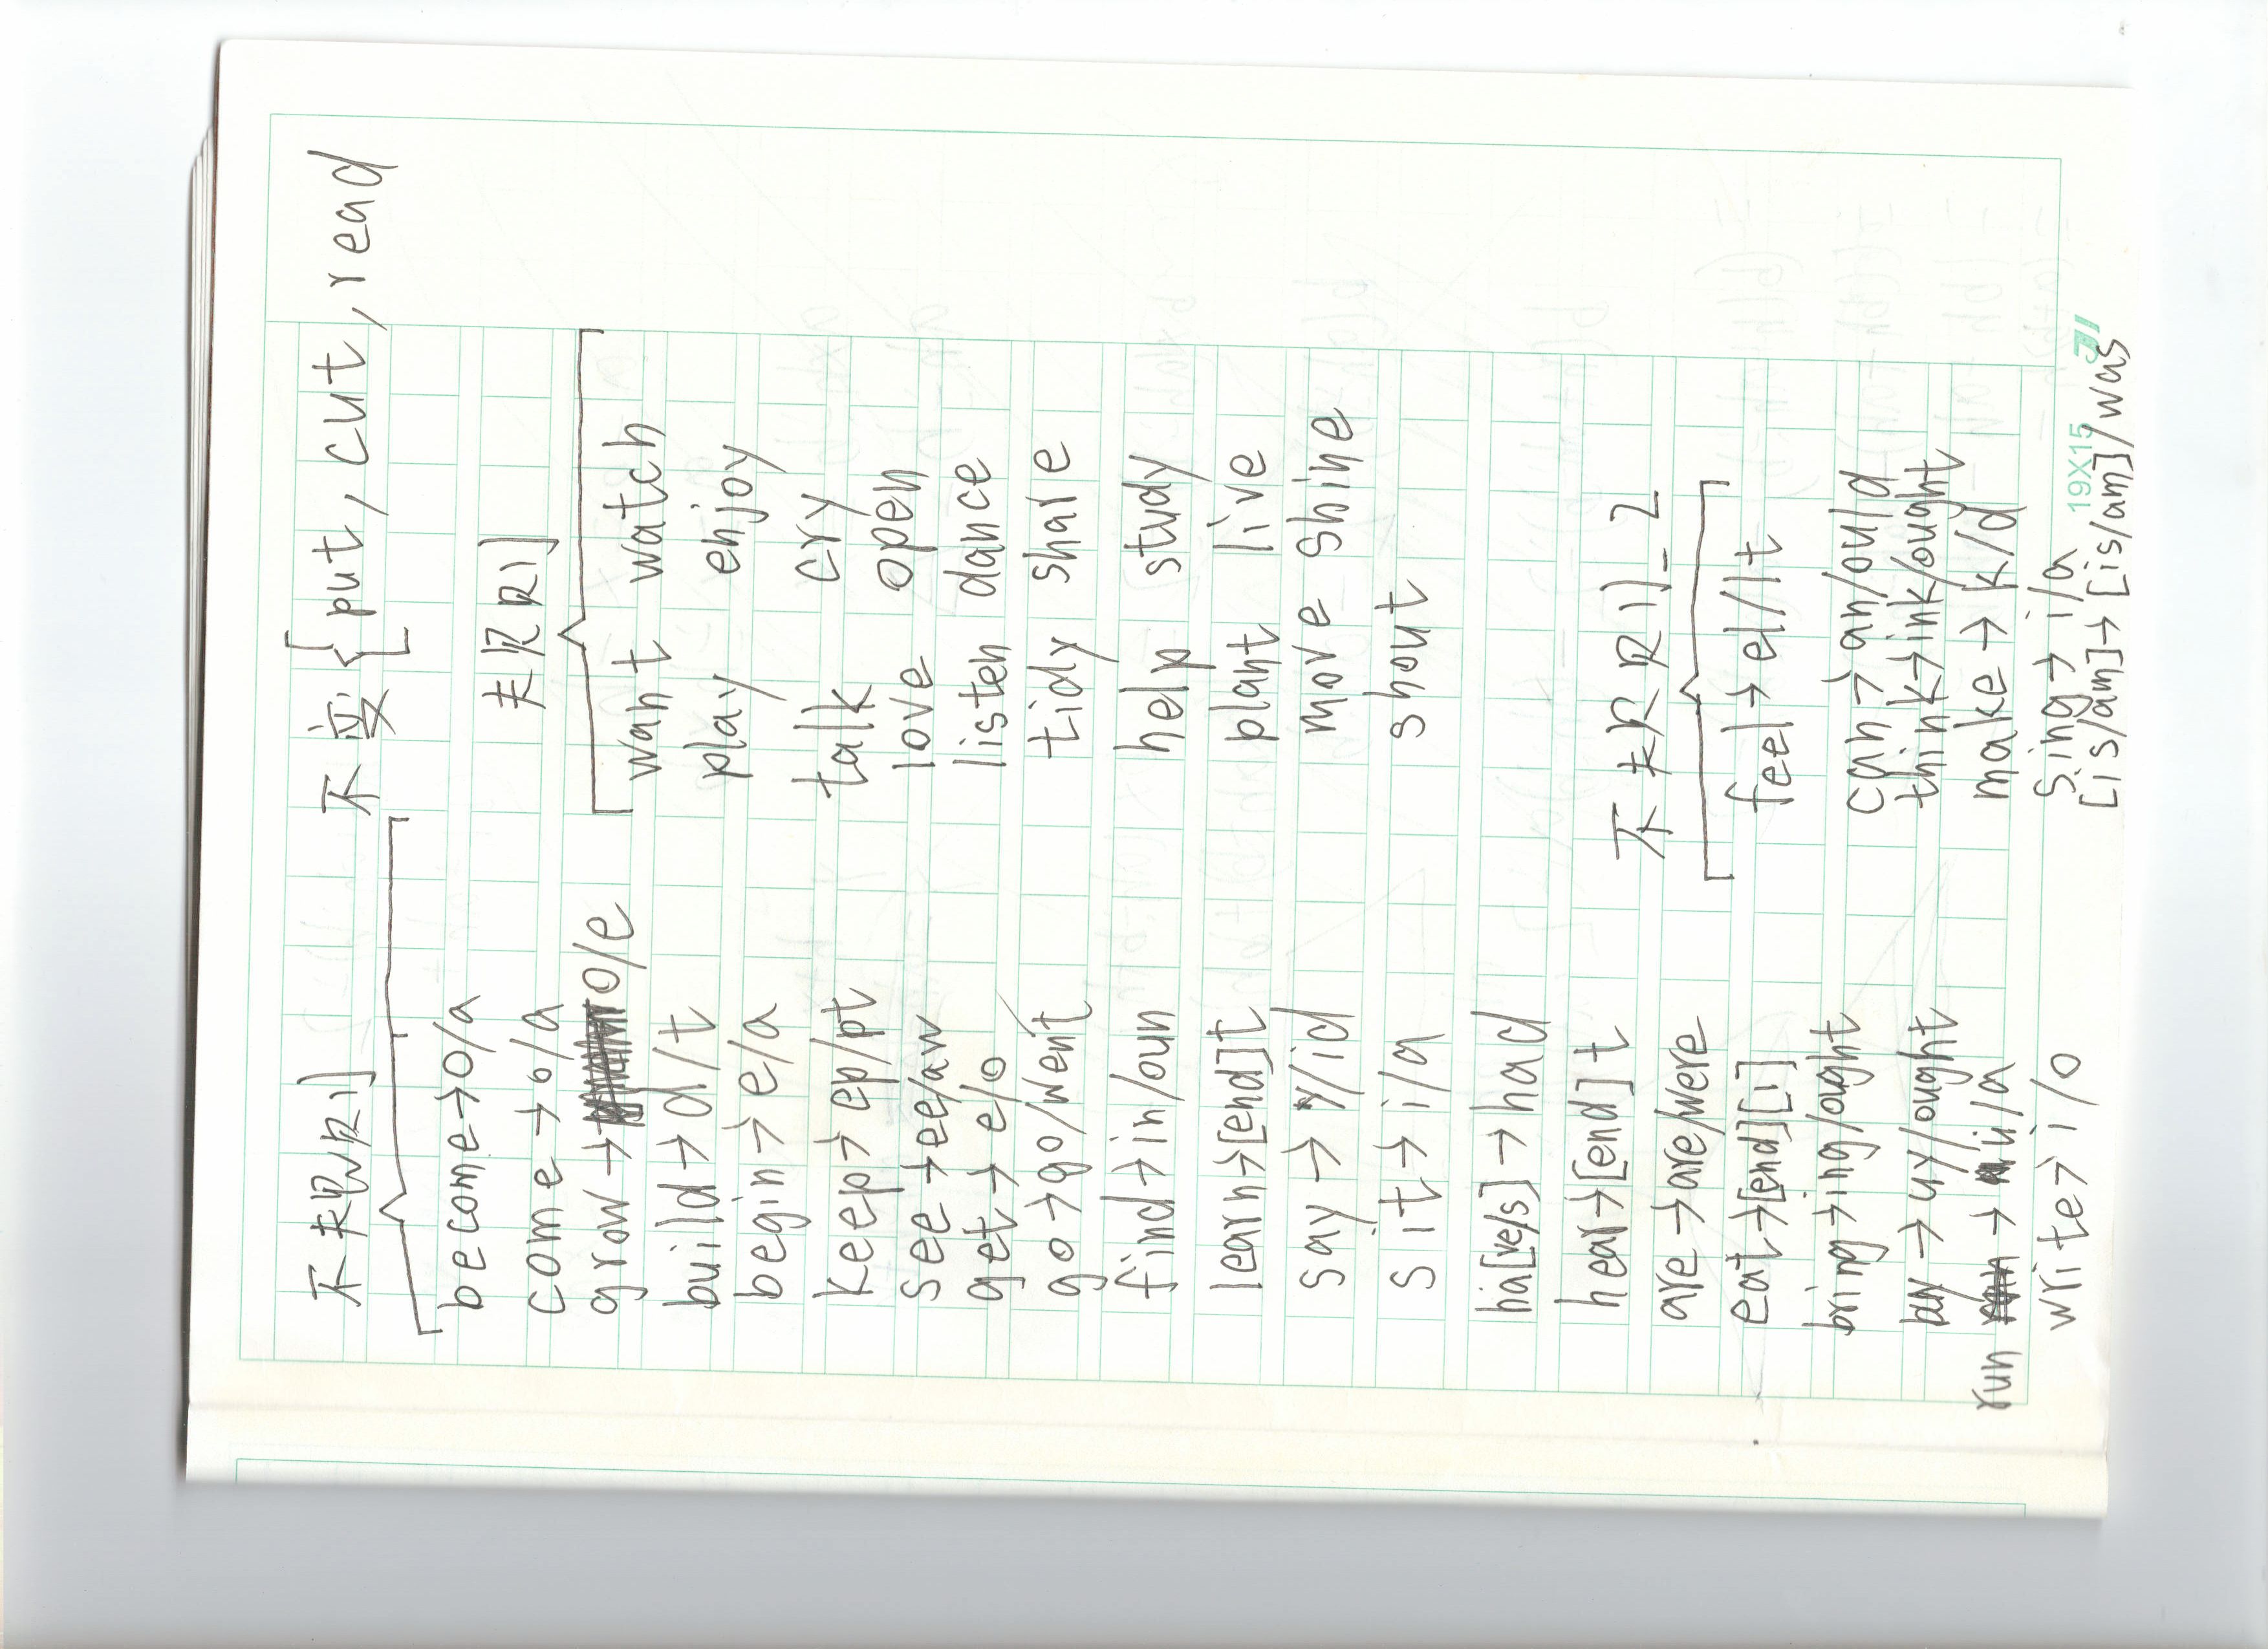 不规则
become→o/a
come→o/a
grow→o/e
build→d/t
begin→e/a
keep→ep/pt
see→ee/aw
get→e/o
go→go/went
find→in/oun
learn→[end]t
say→y/id
sit→i/a
ha[ve/s]→had
hear→[end]t
are→are/were
eat→[end][1]
bring→ing/ought
buy→uy/ought
run→u/a
write→i/o
不变{put,cut,read
规则
want watch
play enjoy
talk cry
love open
listen dance
tidy share
help study
plant live
move shine
shout
不规则-2
feel→el/lt
can→an/ould
think→ink/ought
make→k/d
sing→i/a
[is/am]→[is/am]/was
19X15